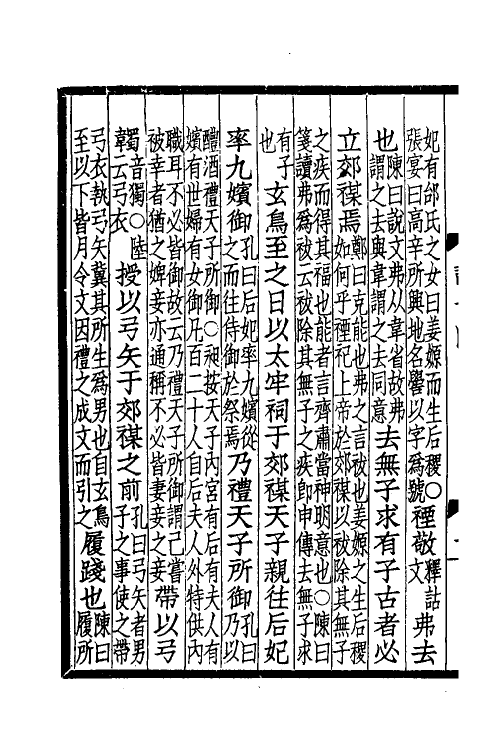 妃有邰氏之女曰姜嫄而生后稷○
張宴曰高辛所興地名嚳以字爲號
禋敬
釋詁
文
弗去
也
陳曰說文弗从韋省故弗
謂之去與韋謂之去同意
去無子求有子古者必
立郊禖焉
鄭曰克能也弗之言祓也姜嫄之生后稷
如何乎禋祀上帝於郊禖以祓除其無子
之疾而得其福也能者言齊肅當神明意也○陳曰
箋讀弗爲祓云祓除其無子之疾卽申傳去無子求
有子
也
玄鳥至之日以太牢祠于郊禖天子親往后妃
率九嬪御
孔曰后妃率九嬪從
之而往侍御於祭焉
乃禮天子所御
孔曰
乃以
醴酒禮天子所御○昶按天子內宮有后有夫人有
嬪有世婦有女御凡百二十人自后夫人外特供內
職耳不必皆御故云乃禮天子所御謂已嘗
被幸者猶之婢妾亦通稱不必皆妻妾之妾
帶以弓
韣
音獨○陸
云弓衣
授以弓矢于郊禖之前
孔曰弓矢者男
子之事使之帶
弓衣執弓矢冀其所生爲男也自玄鳥
至以下皆月令文因禮之成文而引之
履踐也
陳曰
履所